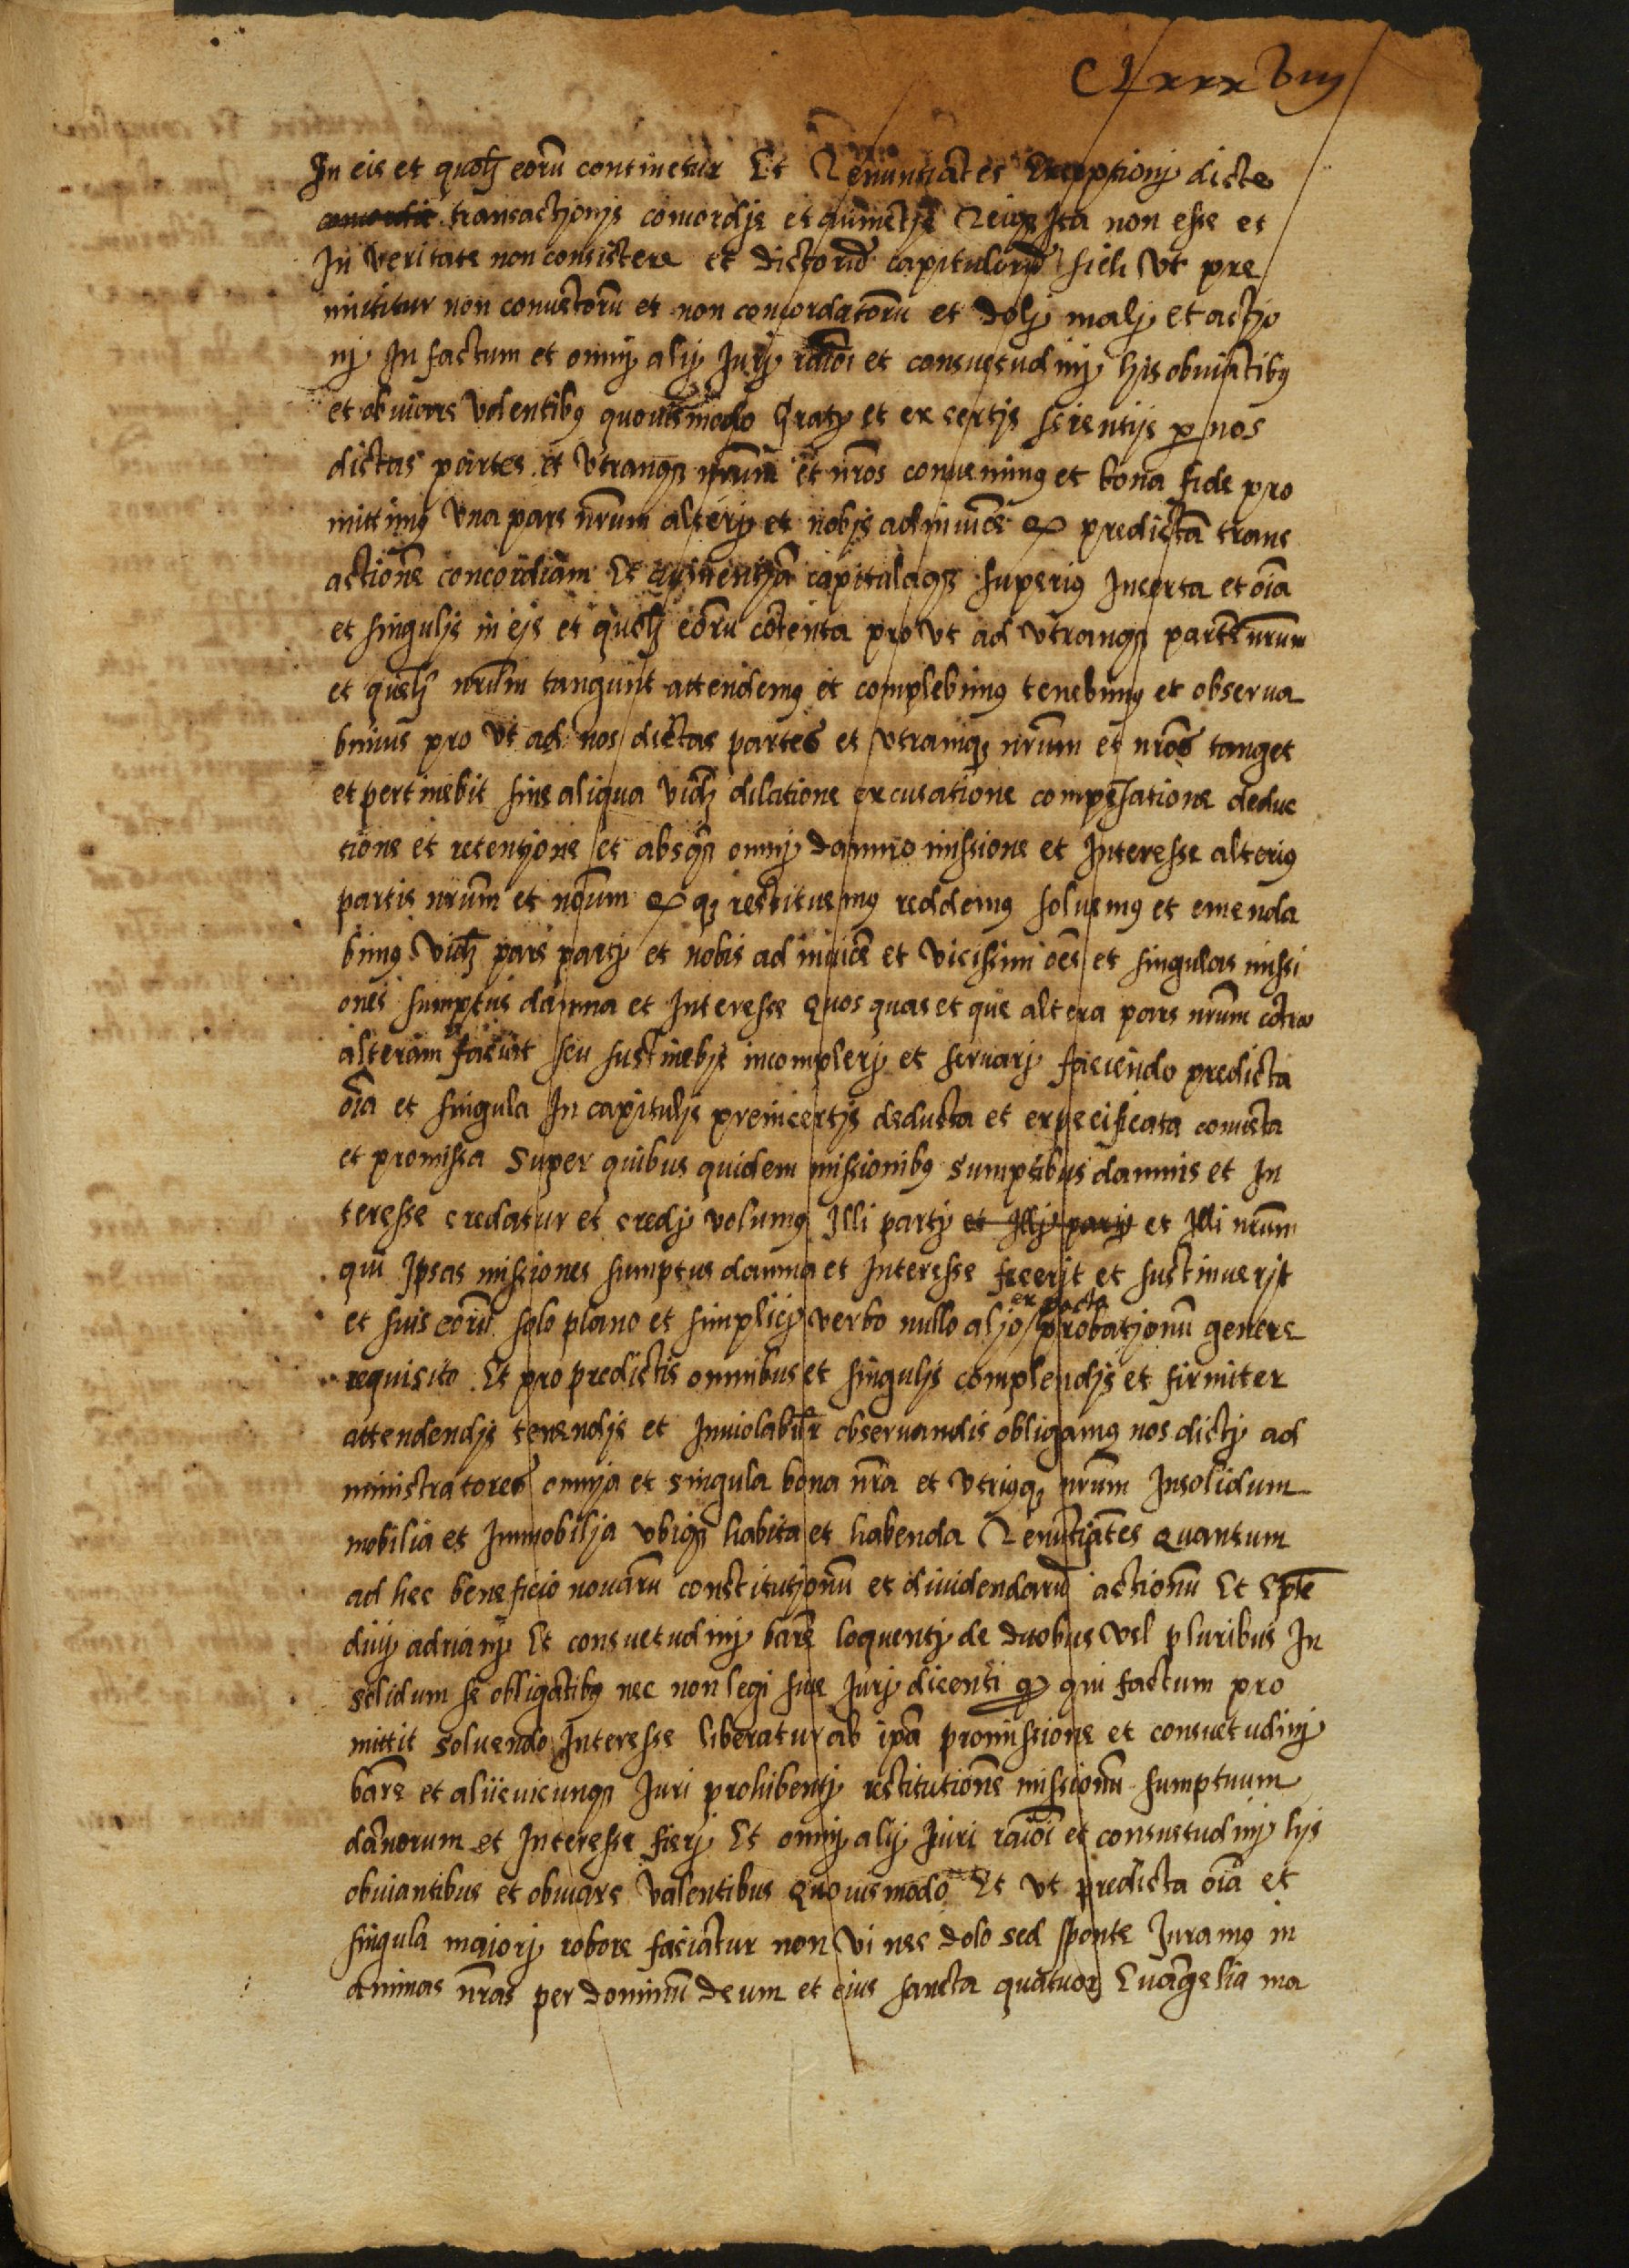 CLxxxviij
In eis et quolꝫ eorũ continetur Et Renunciãtes Exceptionj dicte
concordie transactionjs concordje et auinẽtje Reiqꝫ Ita non esse et
In veritate non consictere et dictorũ capitulorũ fieri vt pre
mititur non conuẽtorũ et non concordatorũ et dolj malj et actio
nj In factum et omnj alij Jurj rãiõi et consuetudinj his obuiãtibꝰ
et obuiare volentibꝰ quouismodo Gratis et ex certjs scientijs ꝑ nos
dictas partes et vtranqꝫ nr̃um et nr̃os conuenimꝰ et bona fide pro
mittimꝰ vna pars nr̃um alterj et nobjs adinuicẽ ꝙ predictã trans
actionẽ concordiam Et auinentjã capitulaqꝫ superiꝰ Incerta et oĩa
et singuljs in ejs et quolꝫ eorũ cõtenta pro vt ad vtranqꝫ partẽ nr̃um
et quẽlꝫ nr̃um tangunt attendemꝰ et complebimꝰ tenebimꝰ et obserua
bimus pro vt ad nos dictas partes et vtramqꝫ nr̃um et nr̃os tanget
et pertinebit sine aliqua vidꝫ dilatione excusatione compẽsatione deduc
tione et retentjone et absqꝫ omnj damno missione et Interesse alteriꝰ
partis nr̃um et nr̃orum ꝙ qꝫ restituemꝰ reddemꝰ soluemꝰ et emenda
bimꝰ vidꝫ pars partj et nobis ad inuicẽ et vicissim oẽs et singulas missi
ones sumptus damna et Interesse quos quas et que altera pars nr̃um cõtra
alteram faciat seu sustinebit incomplerj et seruarj faciendo predicta
oĩa et singula In capituljs preincertjs deducta et expecificata conuẽta
et promissa Super quibus quidem missionibꝰ sumptibus damnis et In
teresse credatur et credj volumꝰ Illi partj et Illj partj et Illi nr̃um
qui Ipsas missiones sumptus damna et Interesse fecerjt et sustinuerjt
et suis eorũ solo plano et simplicj verbo nullo aljo ex pacto probatjonũ genere
requisito Et pro predictis omnibus et singuljs complendjs et firmiter
attendendjs tenendjs et Inuiolabilr̃ obseruandis obligamꝰ nos dictj ad
ministratores omnja et singula bona nr̃a et vtriusqꝫ nr̃um Insolidum
mobilia et Immobilja vbiqꝫ habita et habenda Renũtjãtes quantum
ad hec beneficio nouarũ constitutjonũ et diuidendarũ actionũ Et Epl̃e
diuj adrianj Et consuetudinj barẽ loquentj de duobus vel pluribus In
solidum se obligãtibꝰ nec non legi siue Jurj dicenti ꝙ qui factum pro
mittit soluendo Interesse liberatur ab ipã promissione et consuetudinj
barẽ et aliicuicunqꝫ Juri prohibentj restitutionẽ missionũ sumptuum
dãnorum et Interesse fierj Et omnj alij Juri rãiõi et consuetudinj hjs
obuiantibus et obuiare valentibus quouismodo Et vt predicta oĩa et
singula majorj robore faciãtur non vi nec dolo sed sponte Juramꝰ in
animas nr̃as per dominũ deum et eius sancta quatuor Euãgelia ma